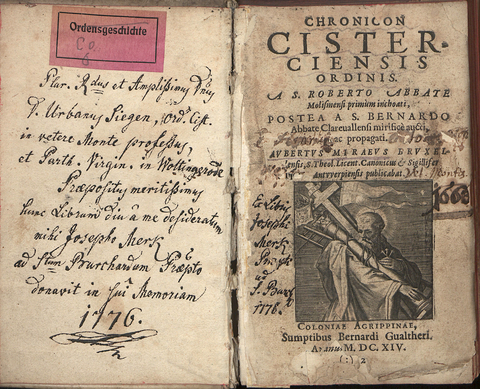 Ordensgeschichte
Plur. Rdus et Amplissimus Dnus
D. Urbanus Siegen, Ord. Cist.
in vetere Monte professus,
et Parth. Virgin. in Woltingerode
Præpositus meritissimus
hunc Librum diu a me desideratum
mihi Josepho Merk
ad Stum Burchardum Præpto
donavit in sui Memoriam
1776.
CHRONICON
CISTER-
CIENSIS
ORDINIS.
A S. ROBERTO ABBATE
Molismensi primùm inchoati,
POSTEA A S. BERNARDO
Abbate Claræuallensi mirificè aucti,
ac propagati.
AVBERTVS MIRAEVS BRVXEL-
lensis, S. Theol. Licent. Canonicus & Sigillifer
Antverpiensis publicabat
1668
Ex Libris
Josephi
Merk
ad
S. Burch
1776.
COLONIAE AGRIPPINAE,
Sumptibus Bernardi Gualtheri.
Anno M. DC. XIV.
(:) 2